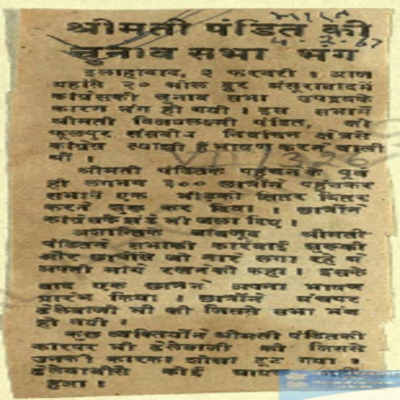 श्रीमती पंडित की
चुनाव सभा भंग
इलाहाबाद, २ फरवरी । आज
यहांसे २० मील दूर मंसूराबादमें
कांग्रेसकी चुनाव सभा उपद्रवके
कारण भंग हो गयी । इस सभामें
श्रीमती विजयलक्ष्मी पंडित, जो
फूलपुर संसदीय निर्वाचन क्षेत्रसे
कांग्रेस प्रत्याशी हैं भाषण करने वाली
थीं ।
श्रीमती पंडितके पहुंचनेके पूर्व
ही लगभग ३०० छात्रोंने पहुंचकर
सभामें एक भीड़को तितर बितर
करने शुरू कर दिया । छात्रोंने
कांग्रेसके झंडे भी जला दिए ।
अशान्तिके बावजूद श्रीमती
पंडितने सभाकी कारवाई शुरूकी
और छात्रोंसे जो नारे लगा रहे थे
अपनी मांगें रखनेको कहा । इसके
बाद एक छात्रने अपना भाषण
प्रारंभ किया । छात्रोंने मंचपर
ढेलेबाजी भी की जिससे सभा भंग
हो गयी ।
कुछ व्यक्तियोंने श्रीमती पंडितकी
कारपर भी ढेलेबाजी की जिससे
उनकी कारका शीशा टूट गया ।
ढेलेबाजीसे कोई घायल नहीं
हुआ ।